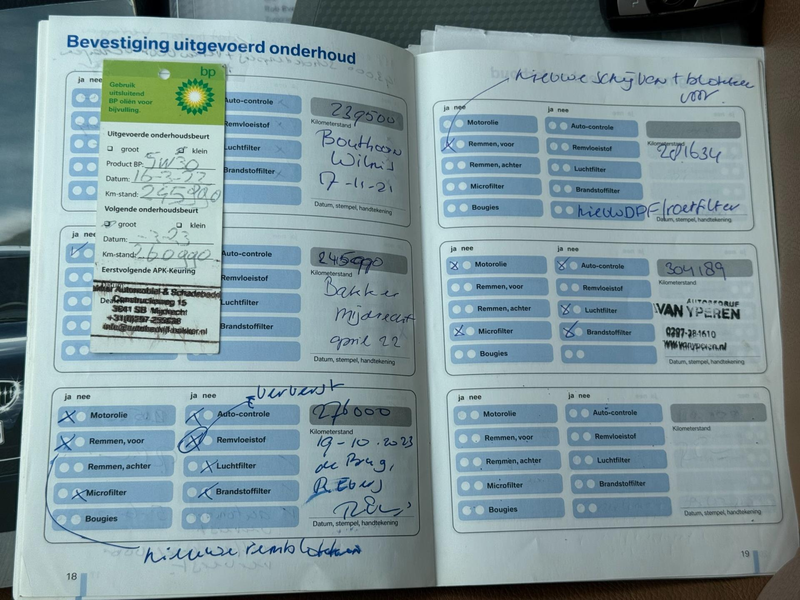 Bevestiging uitgevoerd onderhoud
bp
Gebruik
uitsluitend
BP oliën voor
bijvulling.
Uitgevoerde onderhoudsbeurt
groot klein
Product BP: 5W30
Datum: 16-3-22
Km-stand: 245990
Volgende onderhoudsbeurt
groot klein
Datum: -3-23
Km-stand: 260990
Eerstvolgende APK-Keuring
Automobiel & Schadebedr
Constructieweg 15
3641 SB Mijdrecht
ja nee
Auto-controle
Remvloeistof
Luchtfilter
Brandstoffilter
239000
Kilometerstand
Wilnis
17-11-21
Datum, stempel, handtekening
Auto-controle
Remvloeistof
Luchtfilter
Brandstoffilter
245990
Kilometerstand
Bakker
Mijdrecht
april 22
Datum, stempel, handtekening
ververst
ja nee ja nee
Motorolie Auto-controle
Remmen, voor Remvloeistof
Remmen, achter Luchtfilter
Microfilter Brandstoffilter
Bougies
276000
Kilometerstand
19-10-2023
de Brug,
Datum, stempel, handtekening
nieuwe remblokken
18
nieuwe schijven + blokken
voor
ja nee ja nee
Motorolie Auto-controle
Remmen, voor Remvloeistof
Remmen, achter Luchtfilter
Microfilter Brandstoffilter
Bougies
Kilometerstand
281634
nieuw DPF/roetfilter
Datum, stempel, handtekening
ja nee ja nee
Motorolie Auto-controle
Remmen, voor Remvloeistof
Remmen, achter Luchtfilter
Microfilter Brandstoffilter
Bougies
304189
Kilometerstand
AUTOBEDRIJF
VAN YPEREN
www.vanyperen.nl
Datum, stempel, handtekening
ja nee ja nee
Motorolie Auto-controle
Remmen, voor Remvloeistof
Remmen, achter Luchtfilter
Microfilter Brandstoffilter
Bougies
Kilometerstand
Datum, stempel, handtekening
19